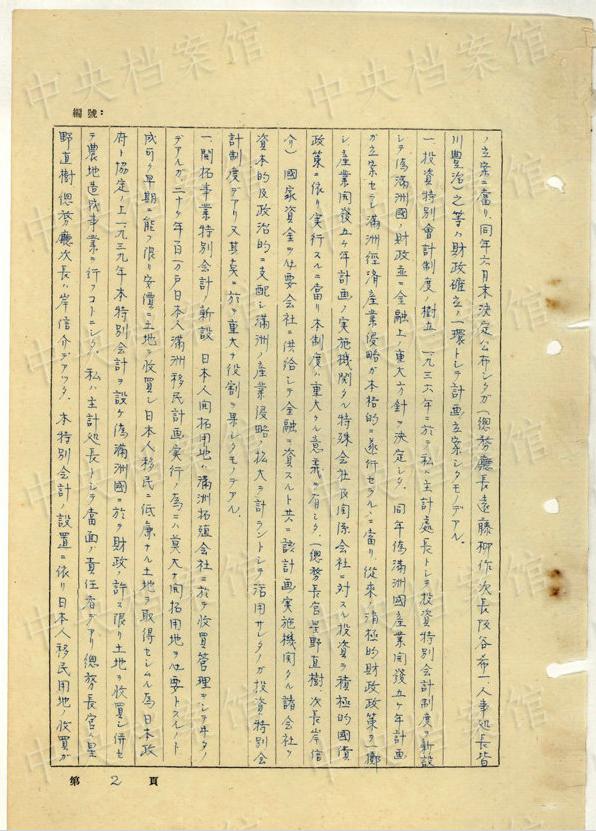 編號：
ノ立案ニ當リ、同年六月末決定公布シタガ（總務廳長遠藤柳作次長阪谷希一人事処長皆
川豐治）之等ハ財政確立ノ一環トシテ計画立案シタモノデアル。
一、投資特別會計制度ノ樹立　一九三六年ニ於テ私ハ主計處長トシテ投資特別会計制度ヲ新設
シテ偽滿洲國ノ財政並ニ金融上ノ重大方針ヲ決定シタ。同年偽滿洲國産業開發五ヶ年計画
ガ立案セラレ滿洲経済産業侵略ガ本格的ニ遂行セラルヽニ當リ從來ノ消極的財政政策ヲ一擲
シ産業開發五ヶ年計画ノ実施機関タル特殊会社及関係会社ニ対スル投資ヲ積極的國債
政策ニ依リ実行スルニ當リ本制度ハ重大ナル意義ヲ有シタ。（總務長官星野直樹次長岸信
介）國家資金ヲ必要会社ニ供給シテ金融ニ資スルト共ニ該計画実施機関タル諸会社ヲ
資本的及政治的ニ支配シ滿洲ノ産業侵略ノ拡大ヲ計ラントシテ活用サレタノガ投資特別会
計制度デアリ又其ノ上ニ於テ重大ナ役割ヲ果シタモノデアル。
一、開拓事業特別会計ノ新設　日本人開拓用地ハ滿洲拓殖会社ニ於テ收買管理シテヰタノ
デアルガ二十ヶ年百万戸日本人滿洲移民計画実行ノ為ニハ莫大ナ開拓用地ヲ必要トスルノト
成可ク早期ニ能フ限リ安價ニ土地ヲ收買シ日本人移民ニ低廉ナル土地ヲ取得セシムル為日本政
府ト協定ノ上一九三九年本特別会計ヲ設ケ偽滿洲國ニ於テ財政ノ許ス限リ土地ヲ收買シ併セ
テ農地造成事業ヲ行フコトニシタ。私ハ主計処長トシテ當面ノ責任者デアリ總務長官ハ星
野直樹總務廳次長ハ岸信介デアツタ。本特別会計ノ設置ニ依リ日本人移民用地ノ收買ガ
第　2　頁
中央档案馆